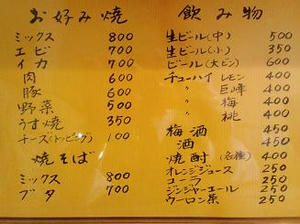 お好み焼
ミックス 800
エビ 700
イカ 700
肉 600
豚 600
野菜 500
うす焼 350
チーズ(トッピング) 100
焼そば
ミックス 800
ブタ 700
飲み物
生ビール(中) 500
生ビール(小) 350
ビール(大ビン) 600
チューハイ レモン 400
〃 巨峰 400
〃 梅 400
〃 桃 400
梅酒 450
酒 450
焼酎(各種) 400
オレンジジュース 250
コーラ 250
ジンジャーエール 250
ウーロン茶 250